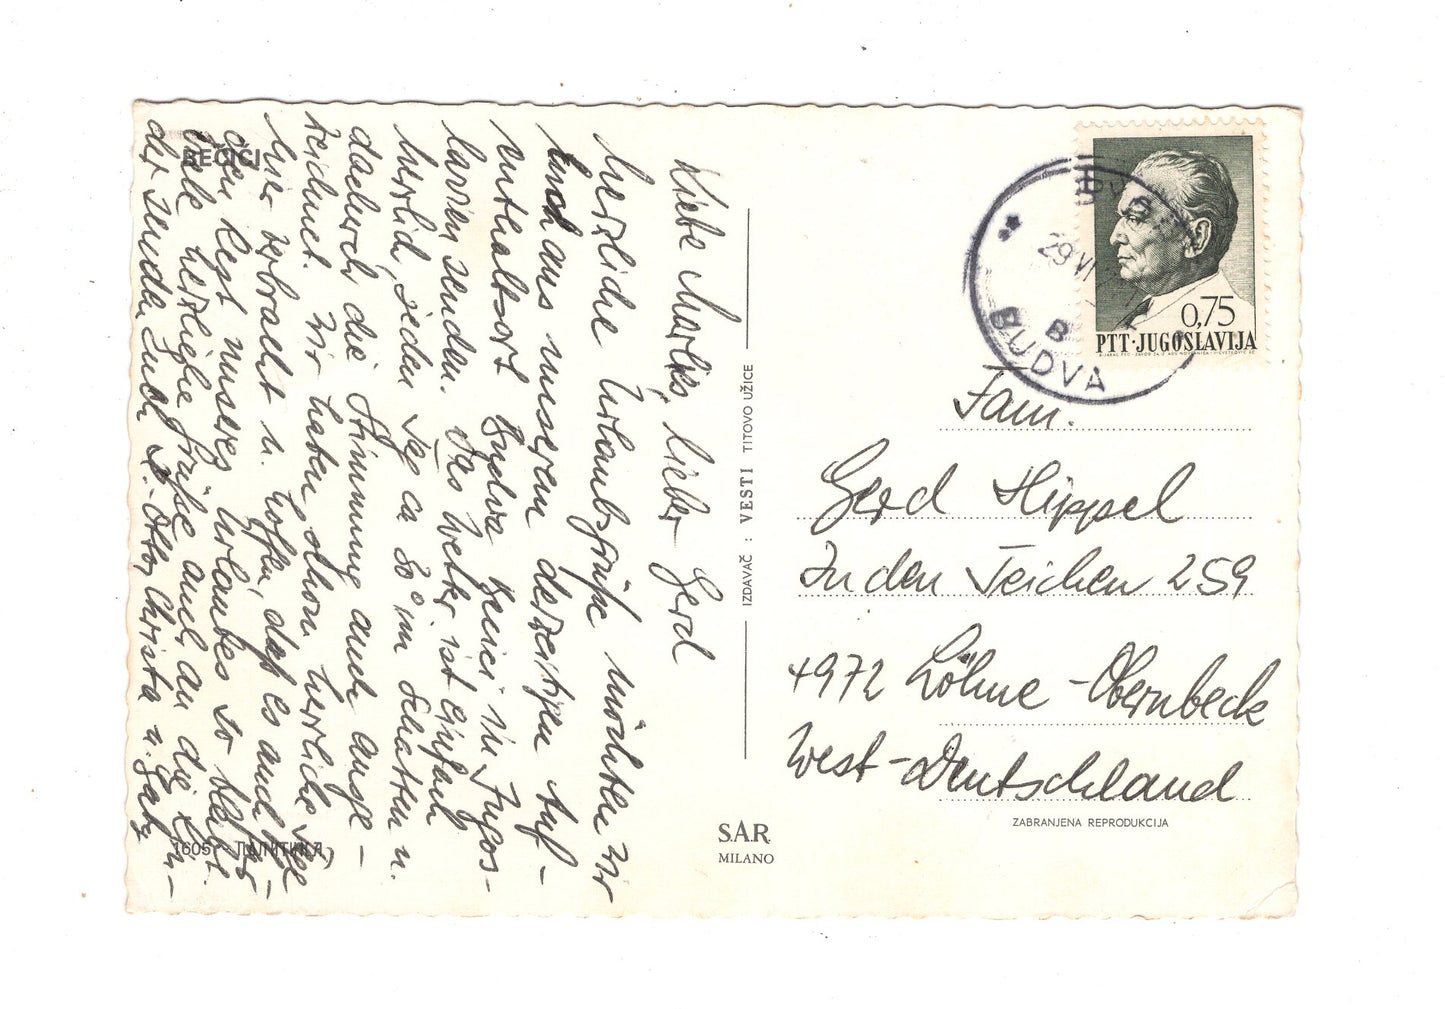 BEČIĆI
Liebe Marlis, lieber Gerd
herzliche Urlaubsgrüße möchten wir
Euch aus unserem derzeitigen Auf-
enthaltsort Budva Bečići in Jugos-
lavien senden. Das Wetter ist einfach
herrlich, jeden Tag ca 30° im Schatten u.
dadurch die Stimmung auch ausge-
zeichnet. Wir haben schon herrliche Tage
hier verbracht u. hoffen, daß es auch für
den Rest unseres Urlaubes so bleibt.
Viele herzliche Grüße auch an die Kin-
der senden Euch
Christa u. Gaby
1605
IZDAVAČ : VESTI TITOVO UŽICE
S.A.R.
MILANO
BUDVA
29 VI
B
BUDVA
0,75
PTT·JUGOSLAVIJA
Fam.
Gerd Hippel
In den Teichen 259
4972 Löhne-Obernbeck
West-Deutschland
ZABRANJENA REPRODUKCIJA